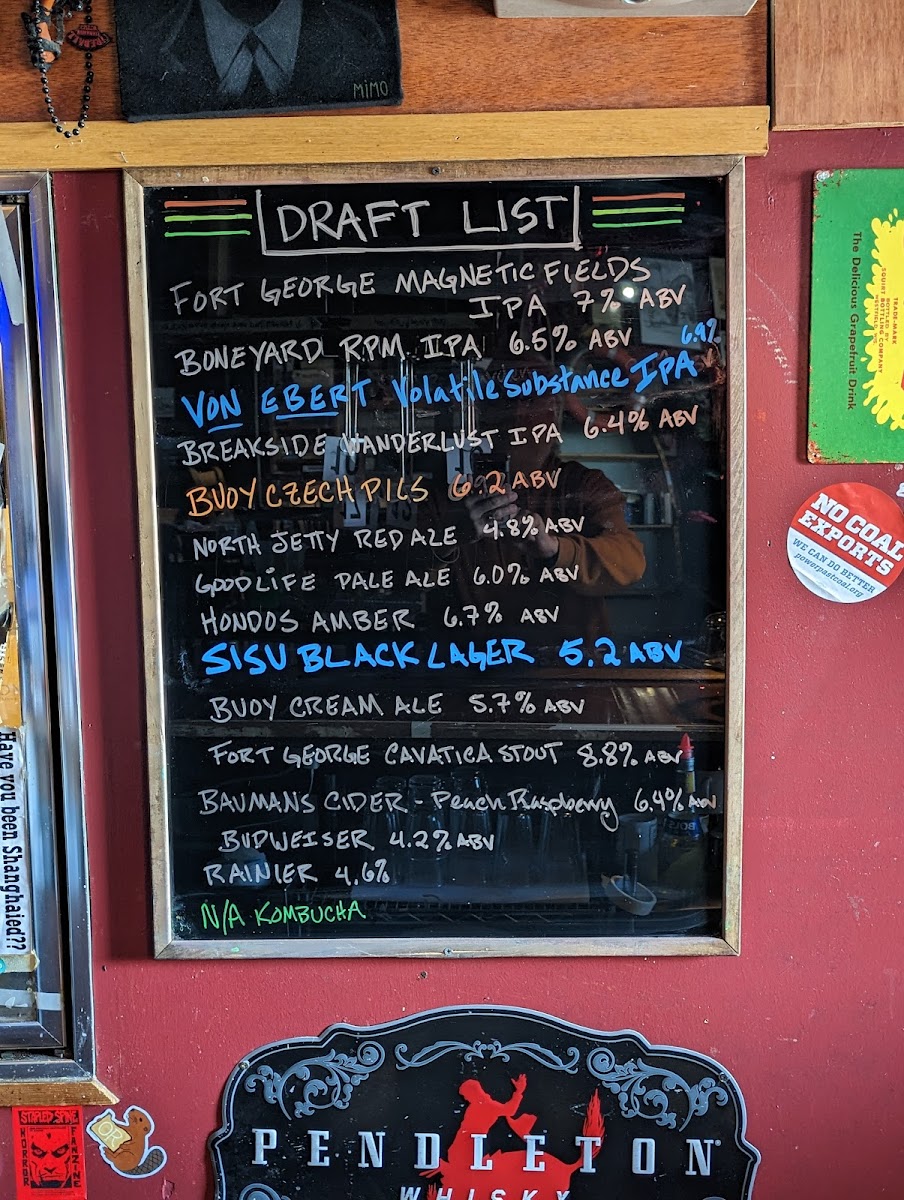 MIMO
DRAFT LIST
FORT GEORGE MAGNETIC FIELDS
IPA 7% ABV
BONEYARD R.P.M. IPA 6.5% ABV
6.9%
VON EBERT Volatile Substance IPA
BREAKSIDE WANDERLUST IPA 6.4% ABV
BUOY CZECH PILS 6.2 ABV
NORTH JETTY RED ALE 4.8% ABV
GOODLIFE PALE ALE 6.0% ABV
HONDOS AMBER 6.7% ABV
SISU BLACK LAGER 5.2 ABV
BUOY CREAM ALE 5.7% ABV
FORT GEORGE CAVATICA STOUT 8.8% ABV
BAUMANS CIDER - Peach Raspberry 6.4% ABV
BUDWEISER 4.2% ABV
RAINIER 4.6%
N/A KOMBUCHA
The Delicious Grapefruit Drink
TRADE-MARK
BOTTLED BY
SQUIRT BOTTLING COMPANY
NO COAL
EXPORTS
WE CAN DO BETTER
powerpastcoal.org
Have you been Shanghaied??
STAPLED SPINE
HORROR
FANZINE
OR
PENDLETON
WHISKY